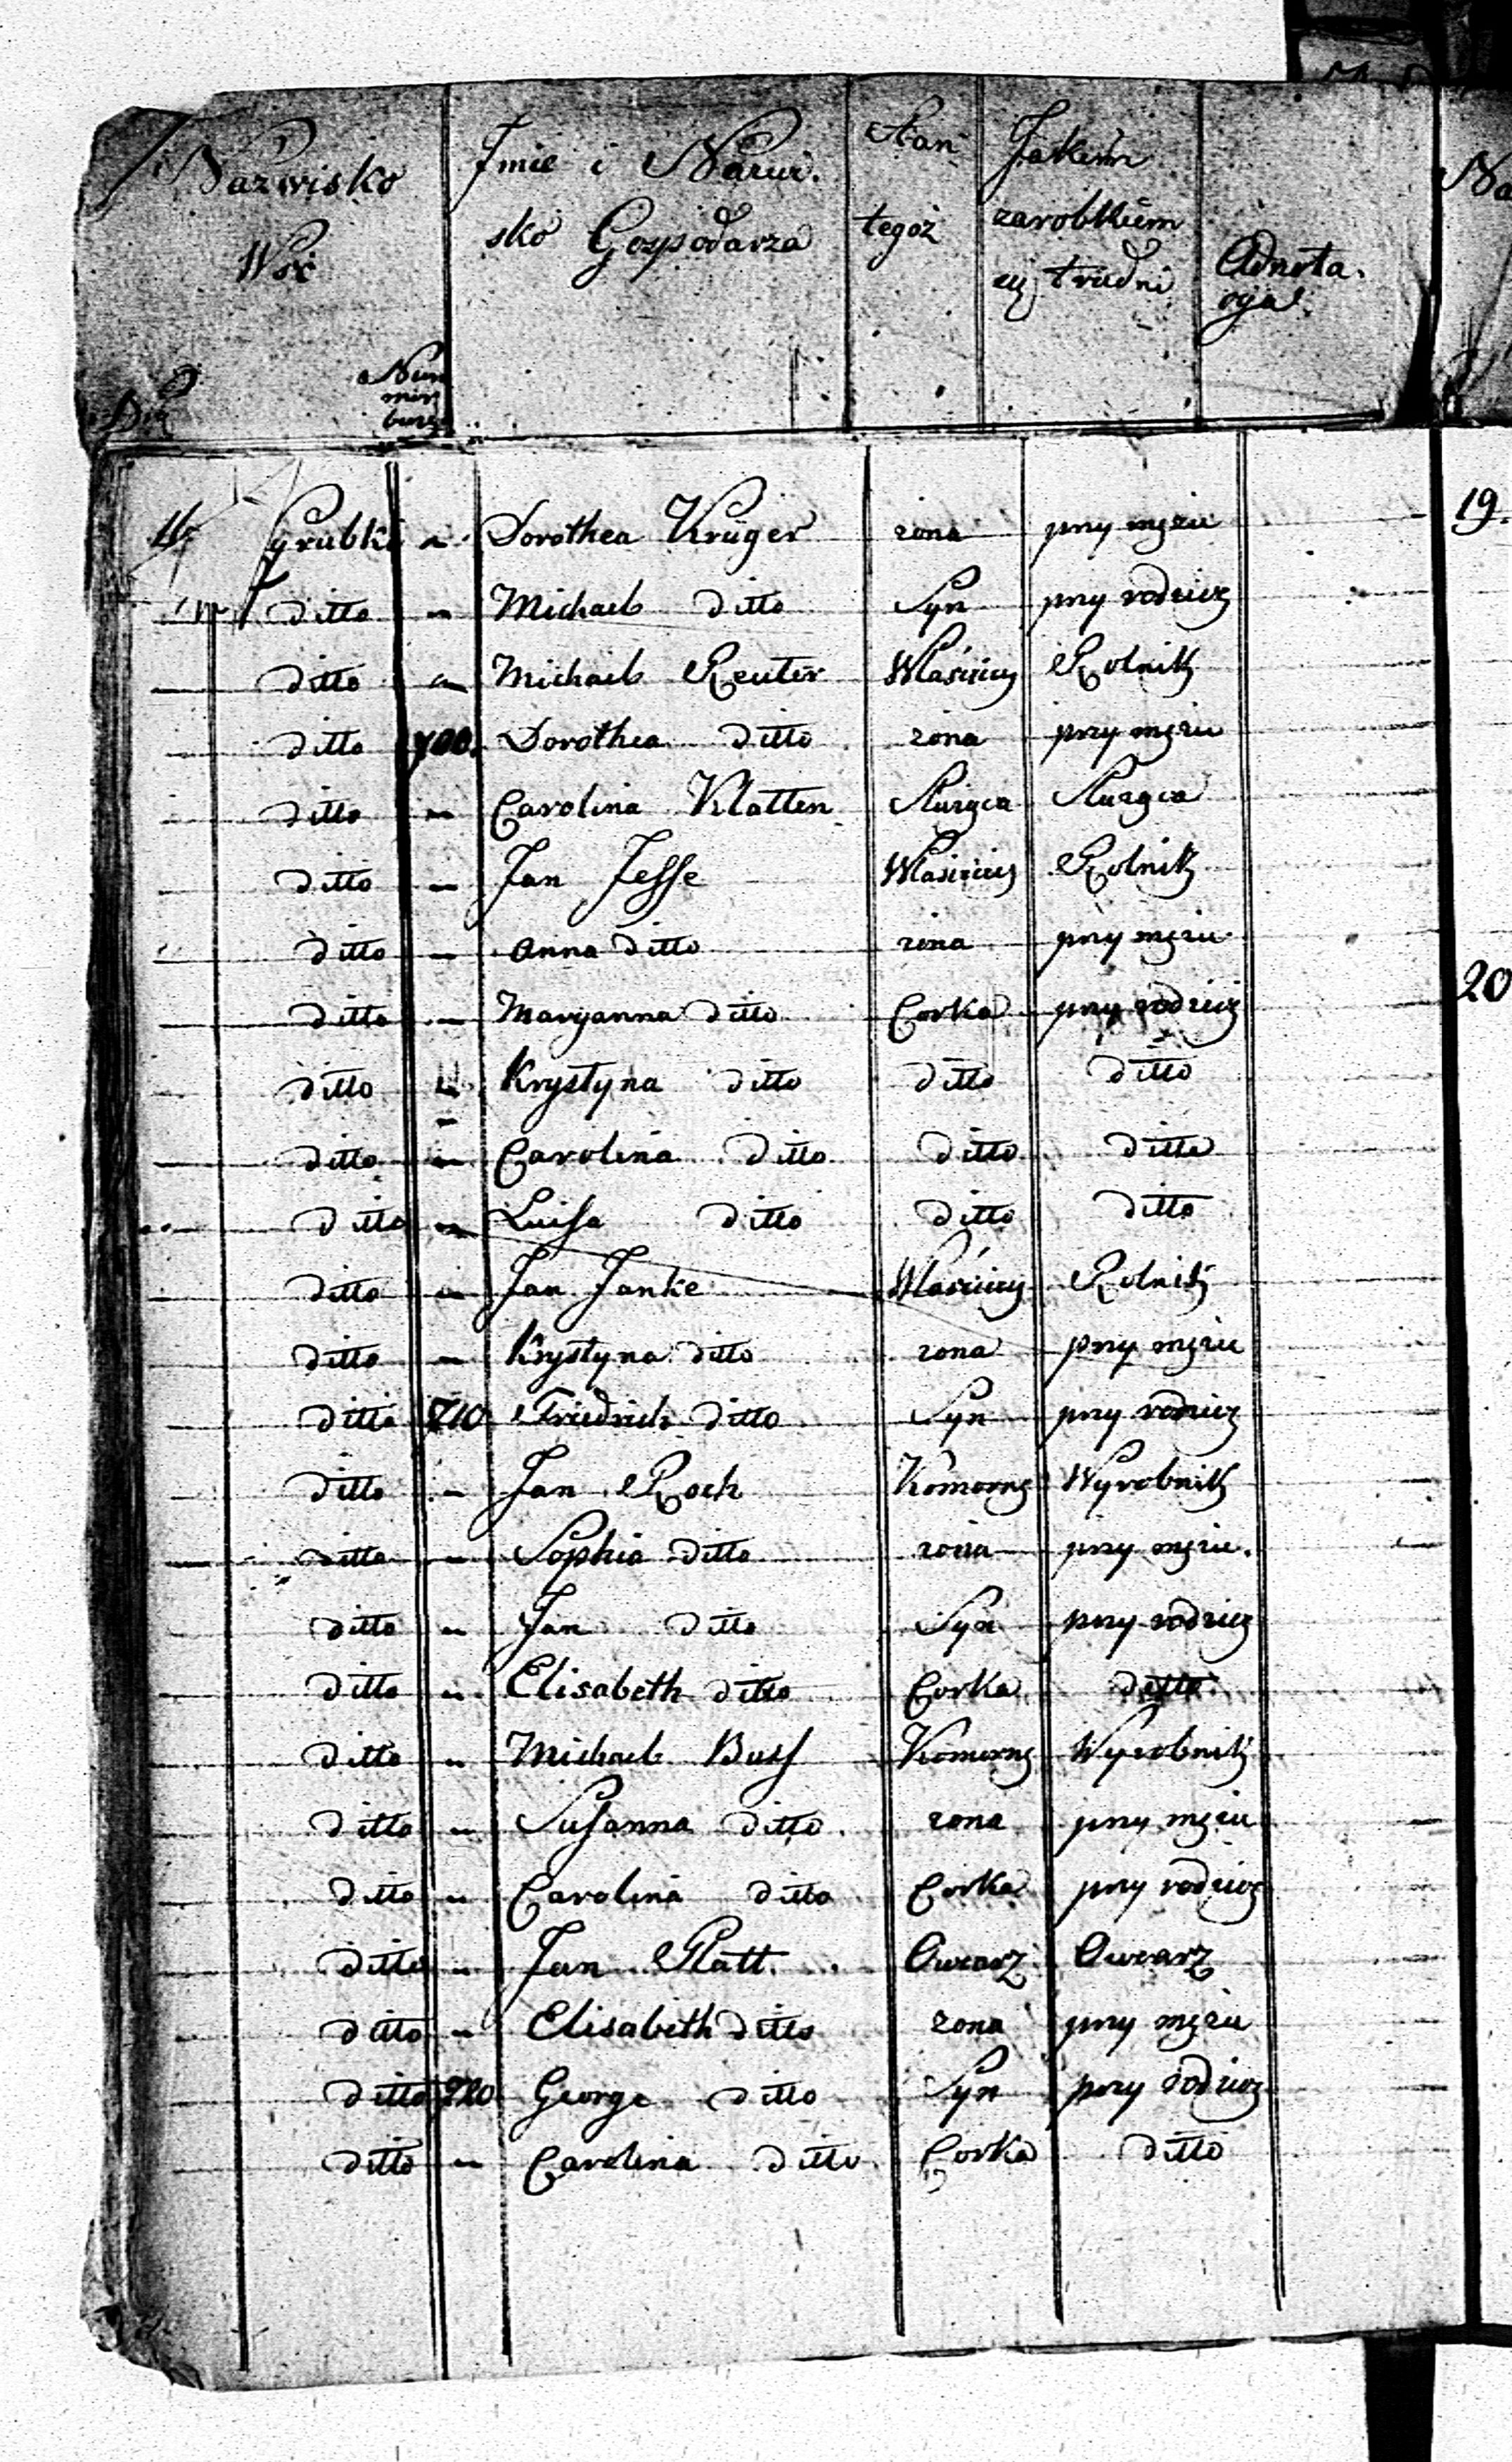 Nazwisko Wsi
Imie i Nazwisko Gospodarza
Stan tegoż
Jakiem zarobkiem się trudni
Adnotacya
Grubki " Dorothea Krüger zona przy męzu
ditto " Michael ditto Syn przy rodzicz
ditto " Michael Reuter Właścicy Rolnik
ditto 700. Dorothea ditto zona przy męzu
ditto " Carolina Klatten Służąca Służąca
ditto " Jan Jesse Właścicy Rolnik
ditto " Anna ditto zona przy męzu
ditto " Maryanna ditto Corka przy rodzicz
ditto " Krystyna ditto ditto ditto
ditto " Carolina ditto ditto ditto
ditto " Luisa ditto ditto ditto
ditto " Jan Janke Właścicy Rolnik
ditto " Krystyna ditto zona przy męzu
ditto 710 Friedrich ditto Syn przy rodzicz
ditto " Jan Roch Komorng Wyrobnik
ditto " Sophia ditto zona przy męzu.
ditto " Jan ditto Syn przy rodzicz
ditto " Elisabeth ditto Corka ditto
ditto " Michael Buss Komorng Wyrobnik
ditto " Susanna ditto zona przy męzu
ditto " Carolina ditto Corka przy rodzicz
ditto " Jan Platt Owcarz Owcarz
ditto " Elisabeth ditto zona przy męzu
ditto 720 George ditto Syn przy rodzicz
ditto " Carolina ditto Corka ditto
19.
20